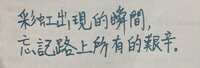 彩虹出現的瞬間,
忘記路上所有的艱辛。